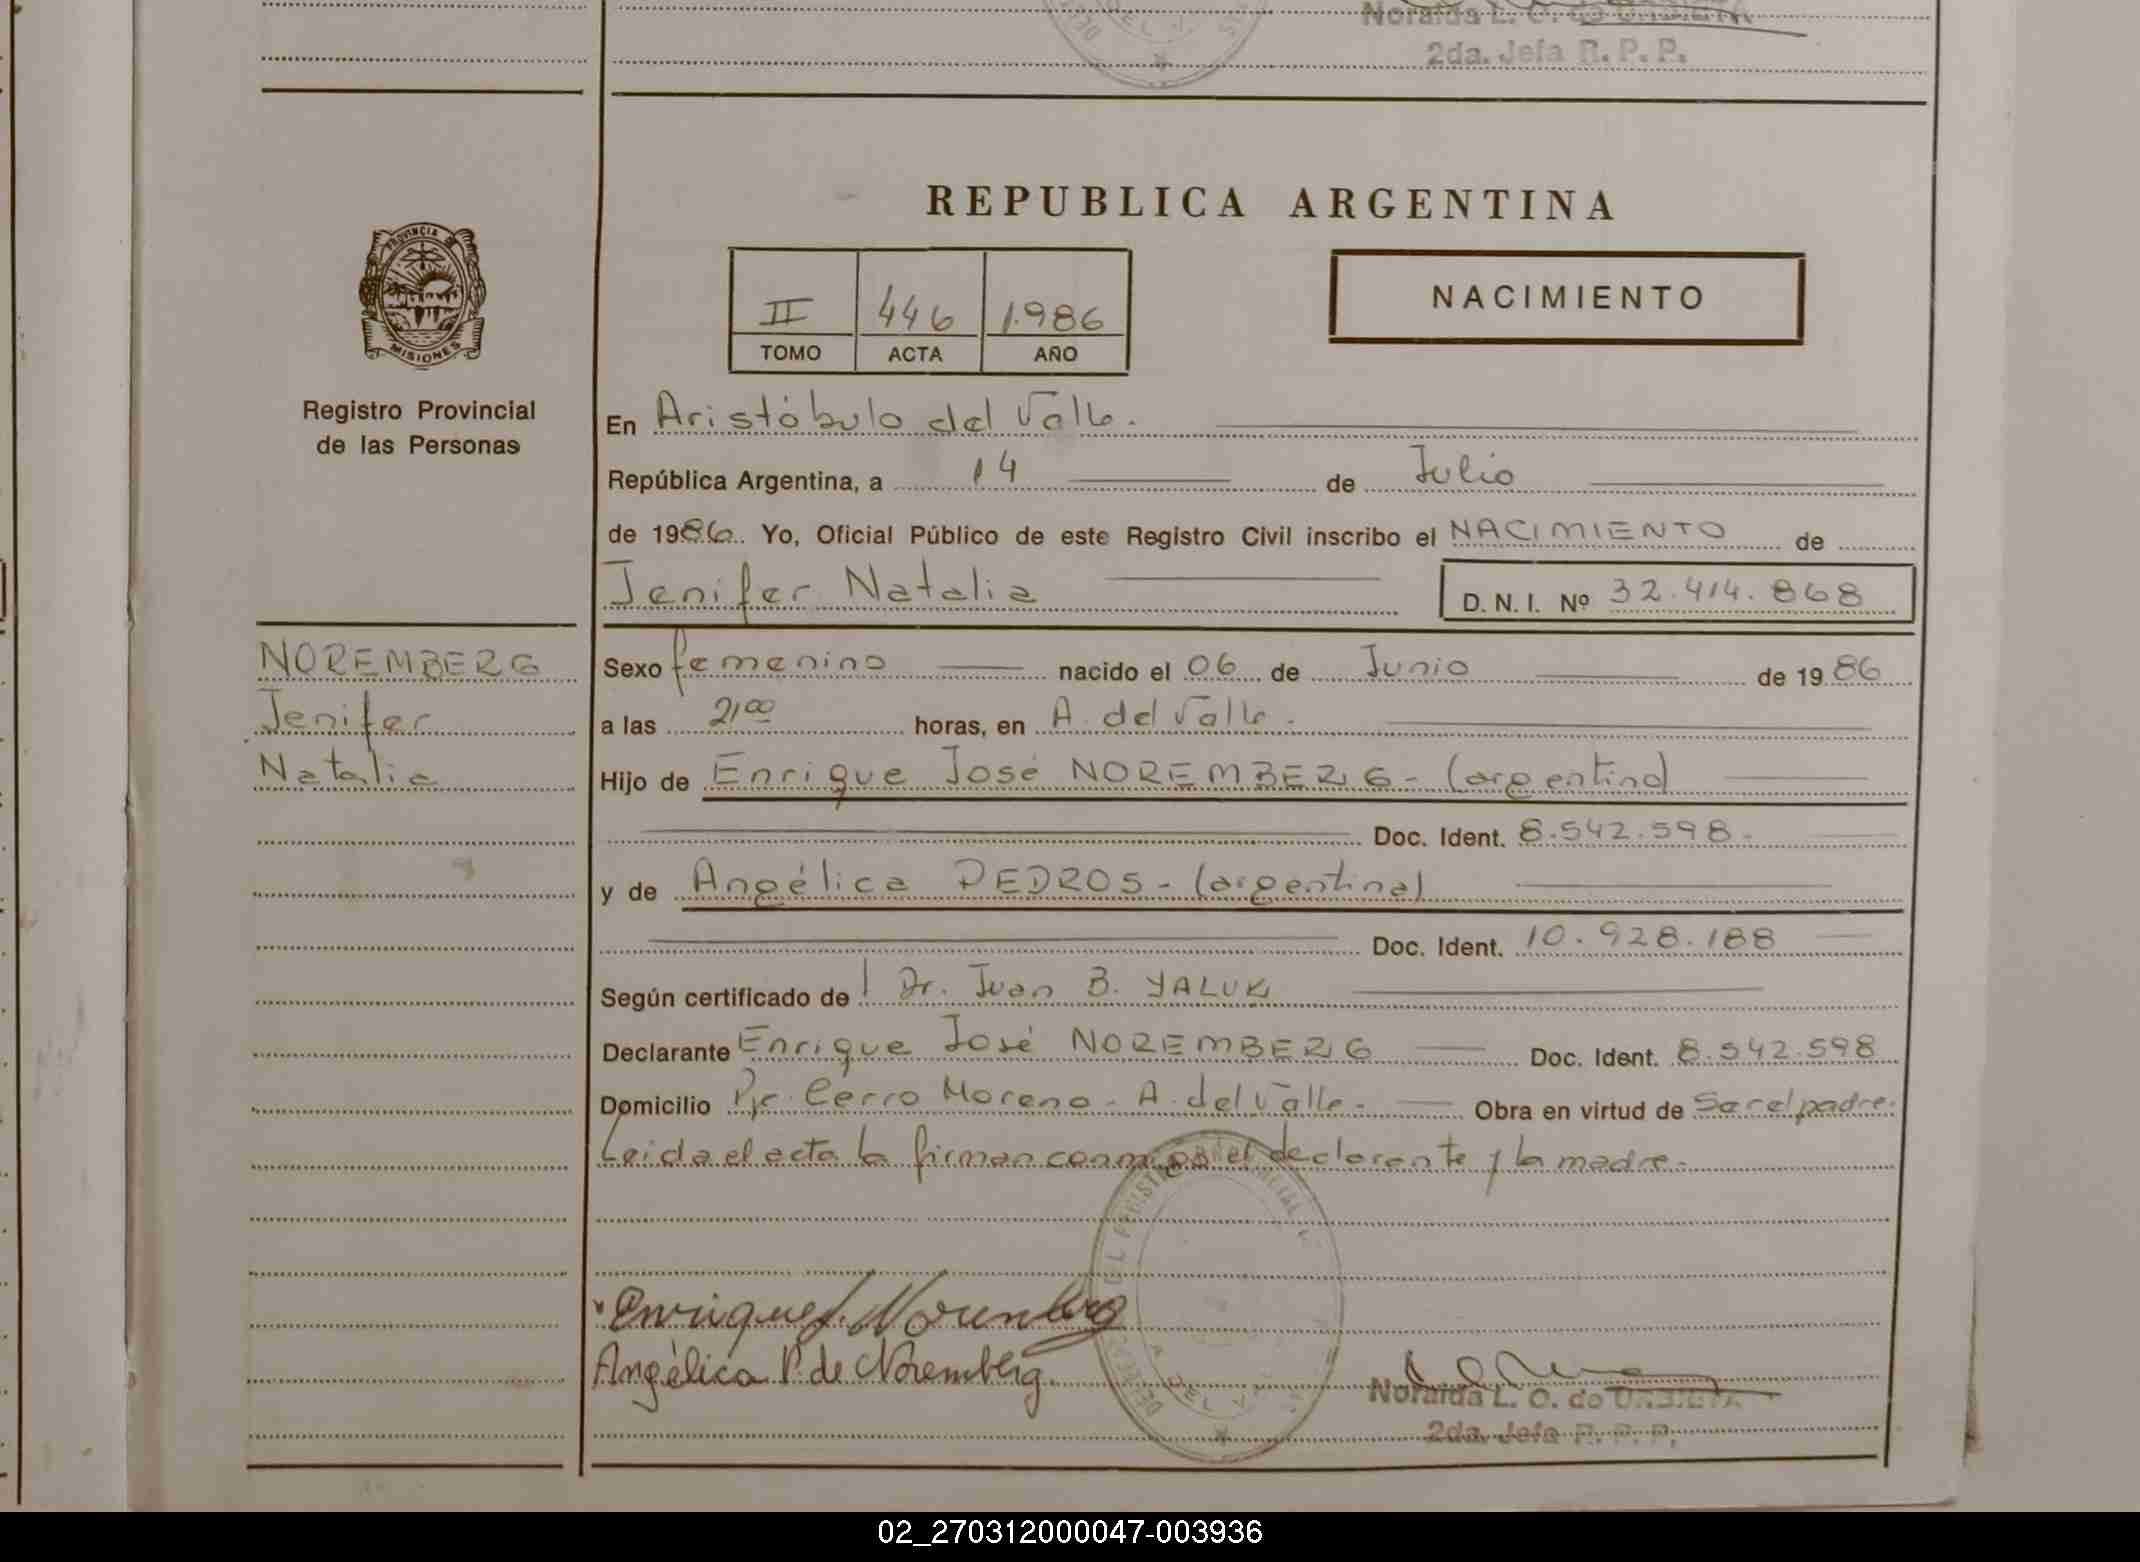 2da. Jefa R. P. P.
REPUBLICA ARGENTINA
PROVINCIA DE
MISIONES
Registro Provincial
de las Personas
II 446 1.986
TOMO ACTA AÑO
NACIMIENTO
En Aristóbulo del Valle.
República Argentina, a 14 de Julio
de 1986. Yo, Oficial Público de este Registro Civil inscribo el NACIMIENTO de
Jenifer Natalia D. N. I. Nº 32.414.868
NOREMBERG
Jenifer
Natalia
Sexo femenino nacido el 06 de Junio de 1986
a las 21,00 horas, en A. del Valle.
Hijo de Enrique José NOREMBERG - (argentino)
Doc. Ident. 8.542.598.
y de Angélica PEDROS - (argentina)
Doc. Ident. 10.928.188
Según certificado de Dr. Juan B. YALUK
Declarante Enrique José NOREMBERG Doc. Ident. 8.542.598
Domicilio Pje. Cerro Moreno - A. del Valle - Obra en virtud de Ser el padre.
Leida el acta la firman conmigo el declarante y la madre.
Enrique J. Noremberg
Angélica P. de Noremberg.
Noralda L. O. de
2da. Jefa R. P. P.
02_270312000047-003936